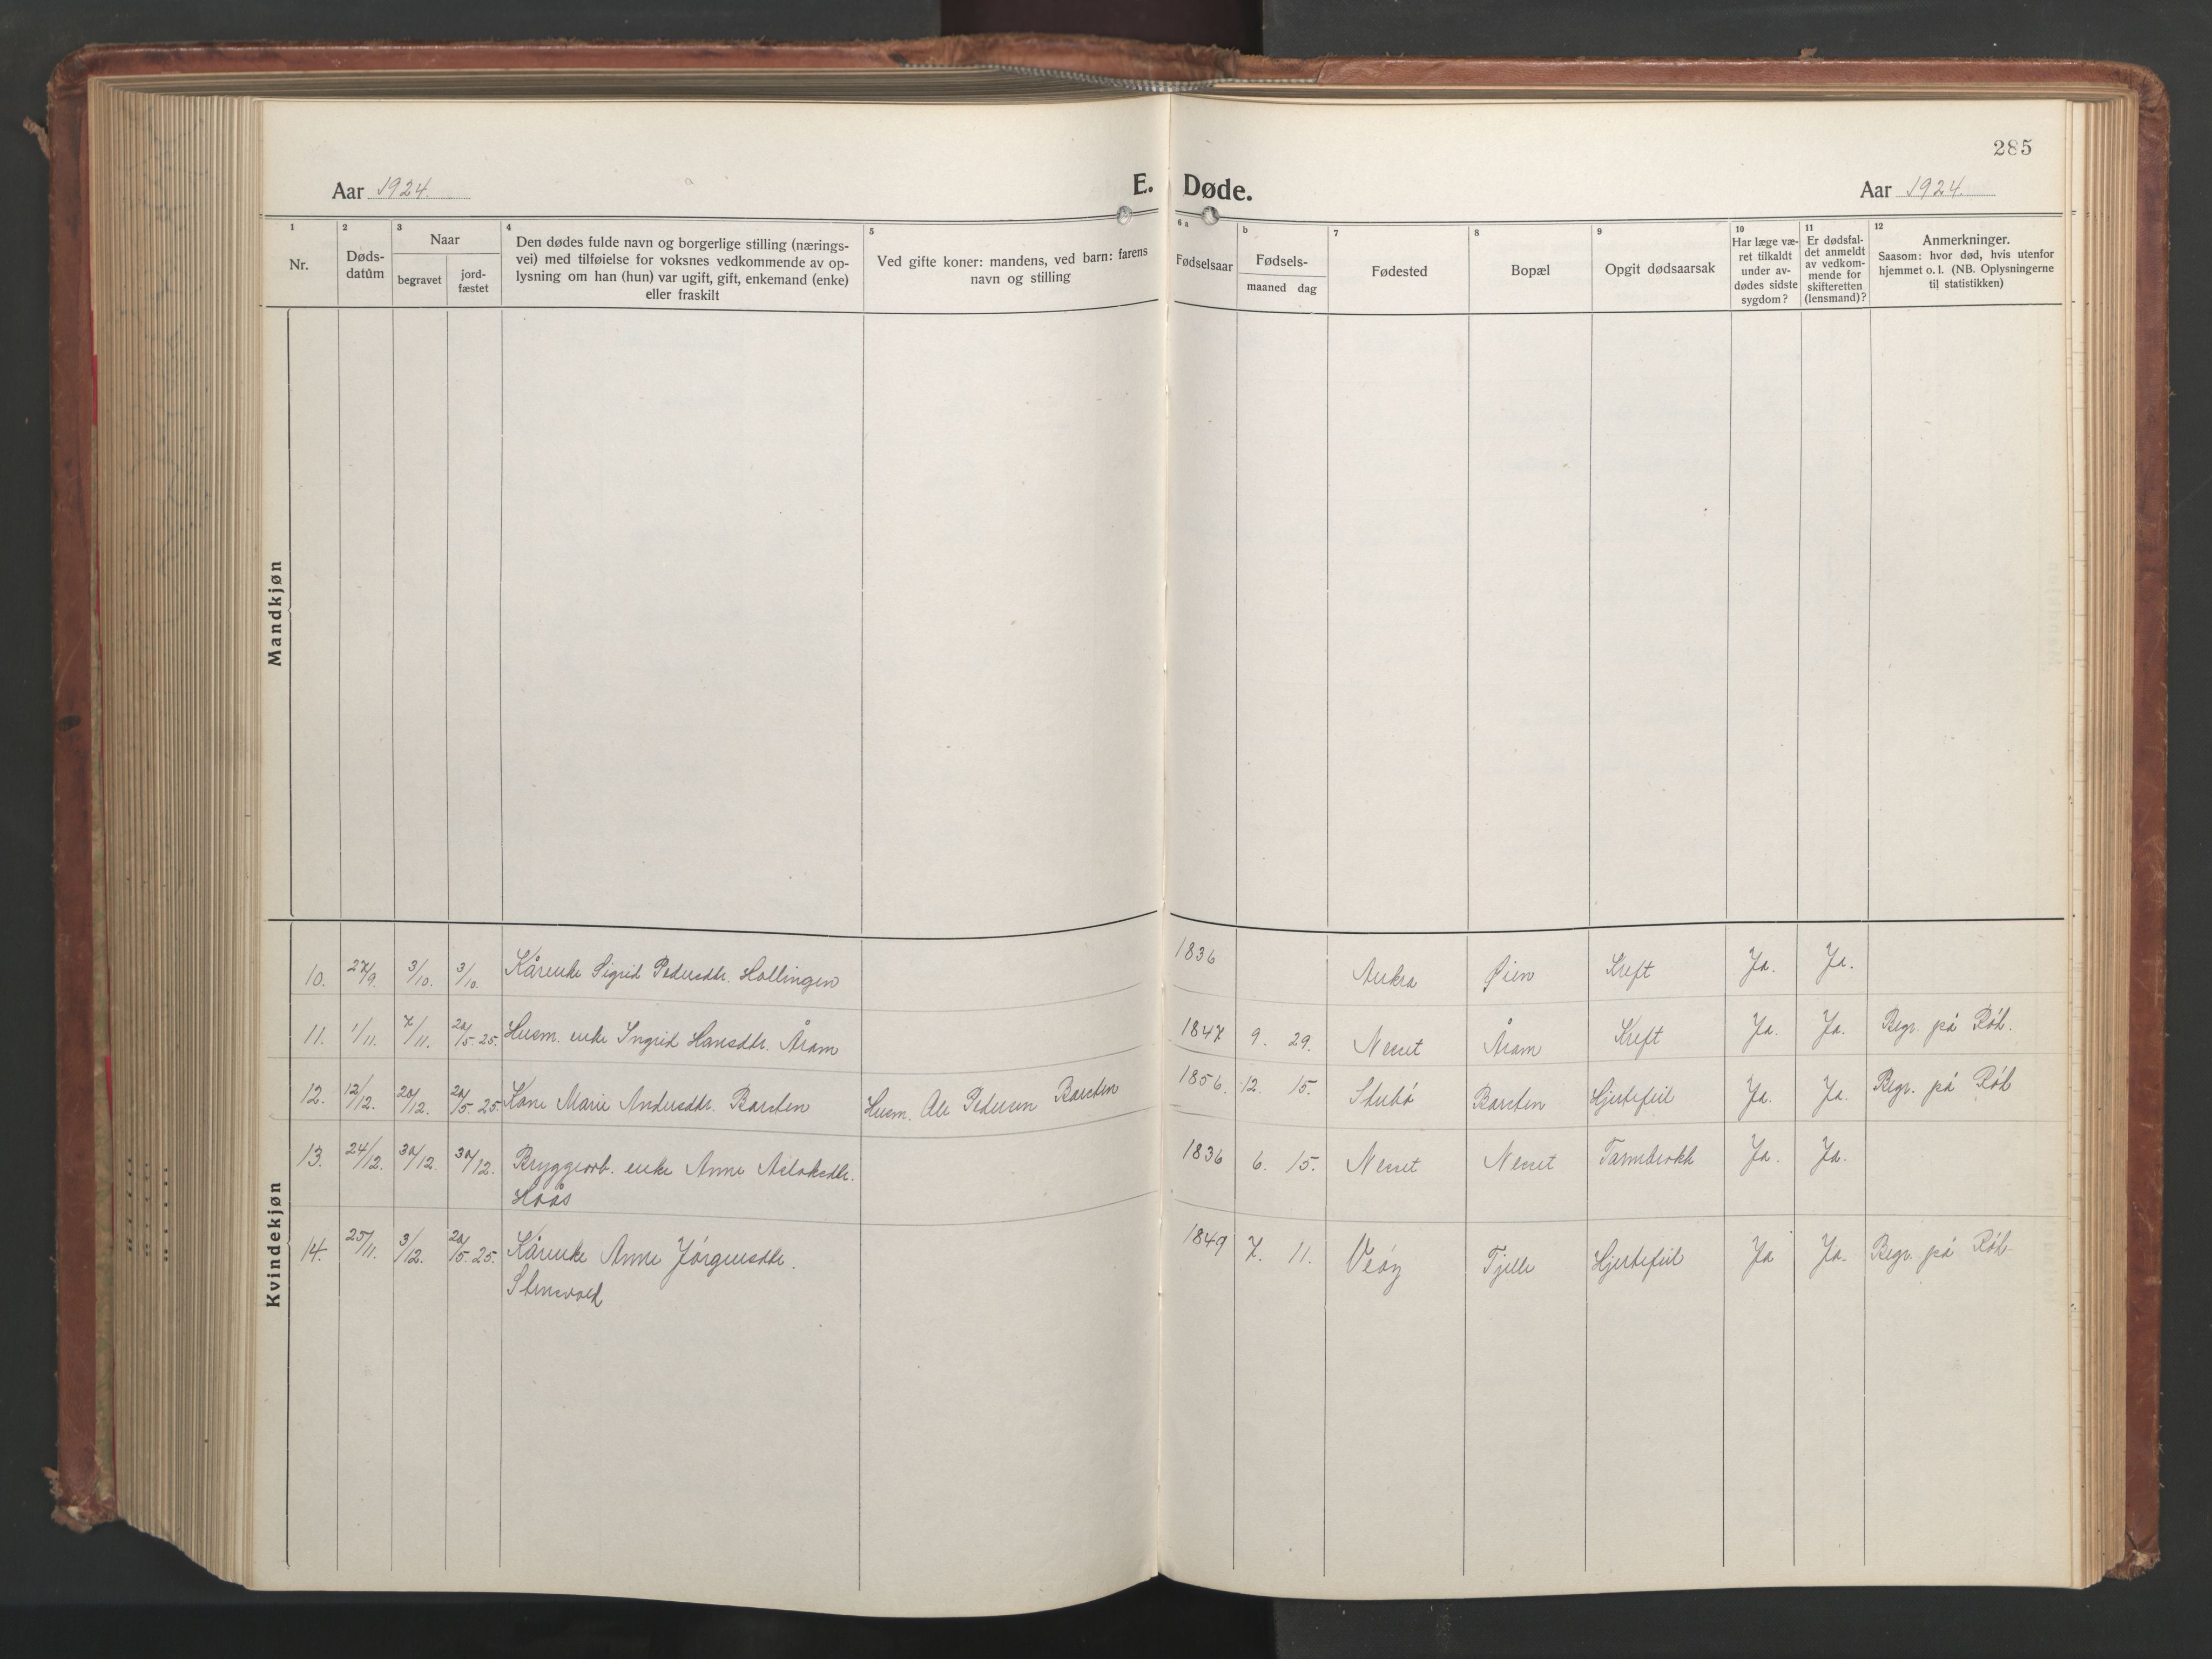 285
Aar 1924.
E. Døde.
Aar 1924.
1
Nr.
2
Døds-
datum
3
Naar
begravet
jord-
fæstet
4
Den dødes fulde navn og borgerlige stilling (nærings-
vei) med tilføielse for voksnes vedkommende av op-
lysning om han (hun) var ugift, gift, enkemand (enke)
eller fraskilt
5
Ved gifte koner: mandens, ved barn: farens
navn og stilling
6 a
Fødselsaar
b
Fødsels-
maaned dag
7
Fødested
8
Bopæl
9
Opgit dødsaarsak
10
Har læge væ-
ret tilkaldt
under av-
dødes sidste
sygdom?
11
Er dødsfal-
det anmeldt
av vedkom-
mende for
skifteretten
(lensmand)?
12
Anmerkninger.
Saasom: hvor død, hvis utenfor
hjemmet o. l. (NB. Oplysningerne
til statistikken)
Mandkjøn
Kvindekjøn
10. 27/9. 3/10. 3/10. Kårenke Sigrid Pedersdtr. Hollingen 1836 Aukra Øien Kreft Ja. Ja.
11. 1/11. 7/11. 20/5. 25. Husm. enke Ingrid Hansdtr. Åram 1847 9. 29. Nesset Åram Kreft Ja. Ja. Begr. på Rød.
12. 12/12. 20/12. 20/5. 25. Kone Marie Andersdtr. Barsten Husm. Ole Pedersen Barsten 1856. 12. 15. Stubø Barsten Hjertefeil Ja. Ja. Begr. på Rød
13. 24/12. 30/12. 30/12. Bryggearb. enke Anne Aslaksdtr.
Haås 1836 6. 15. Nesset Nesset Tarmbrokk Ja. Ja.
14. 25/11. 3/12. 20/5. 25. Kårenke Anne Jørgensdtr.
Stensvold 1849 7. 11. Veøy Tjelle Hjertefeil Ja Ja. Begr. på Rød.